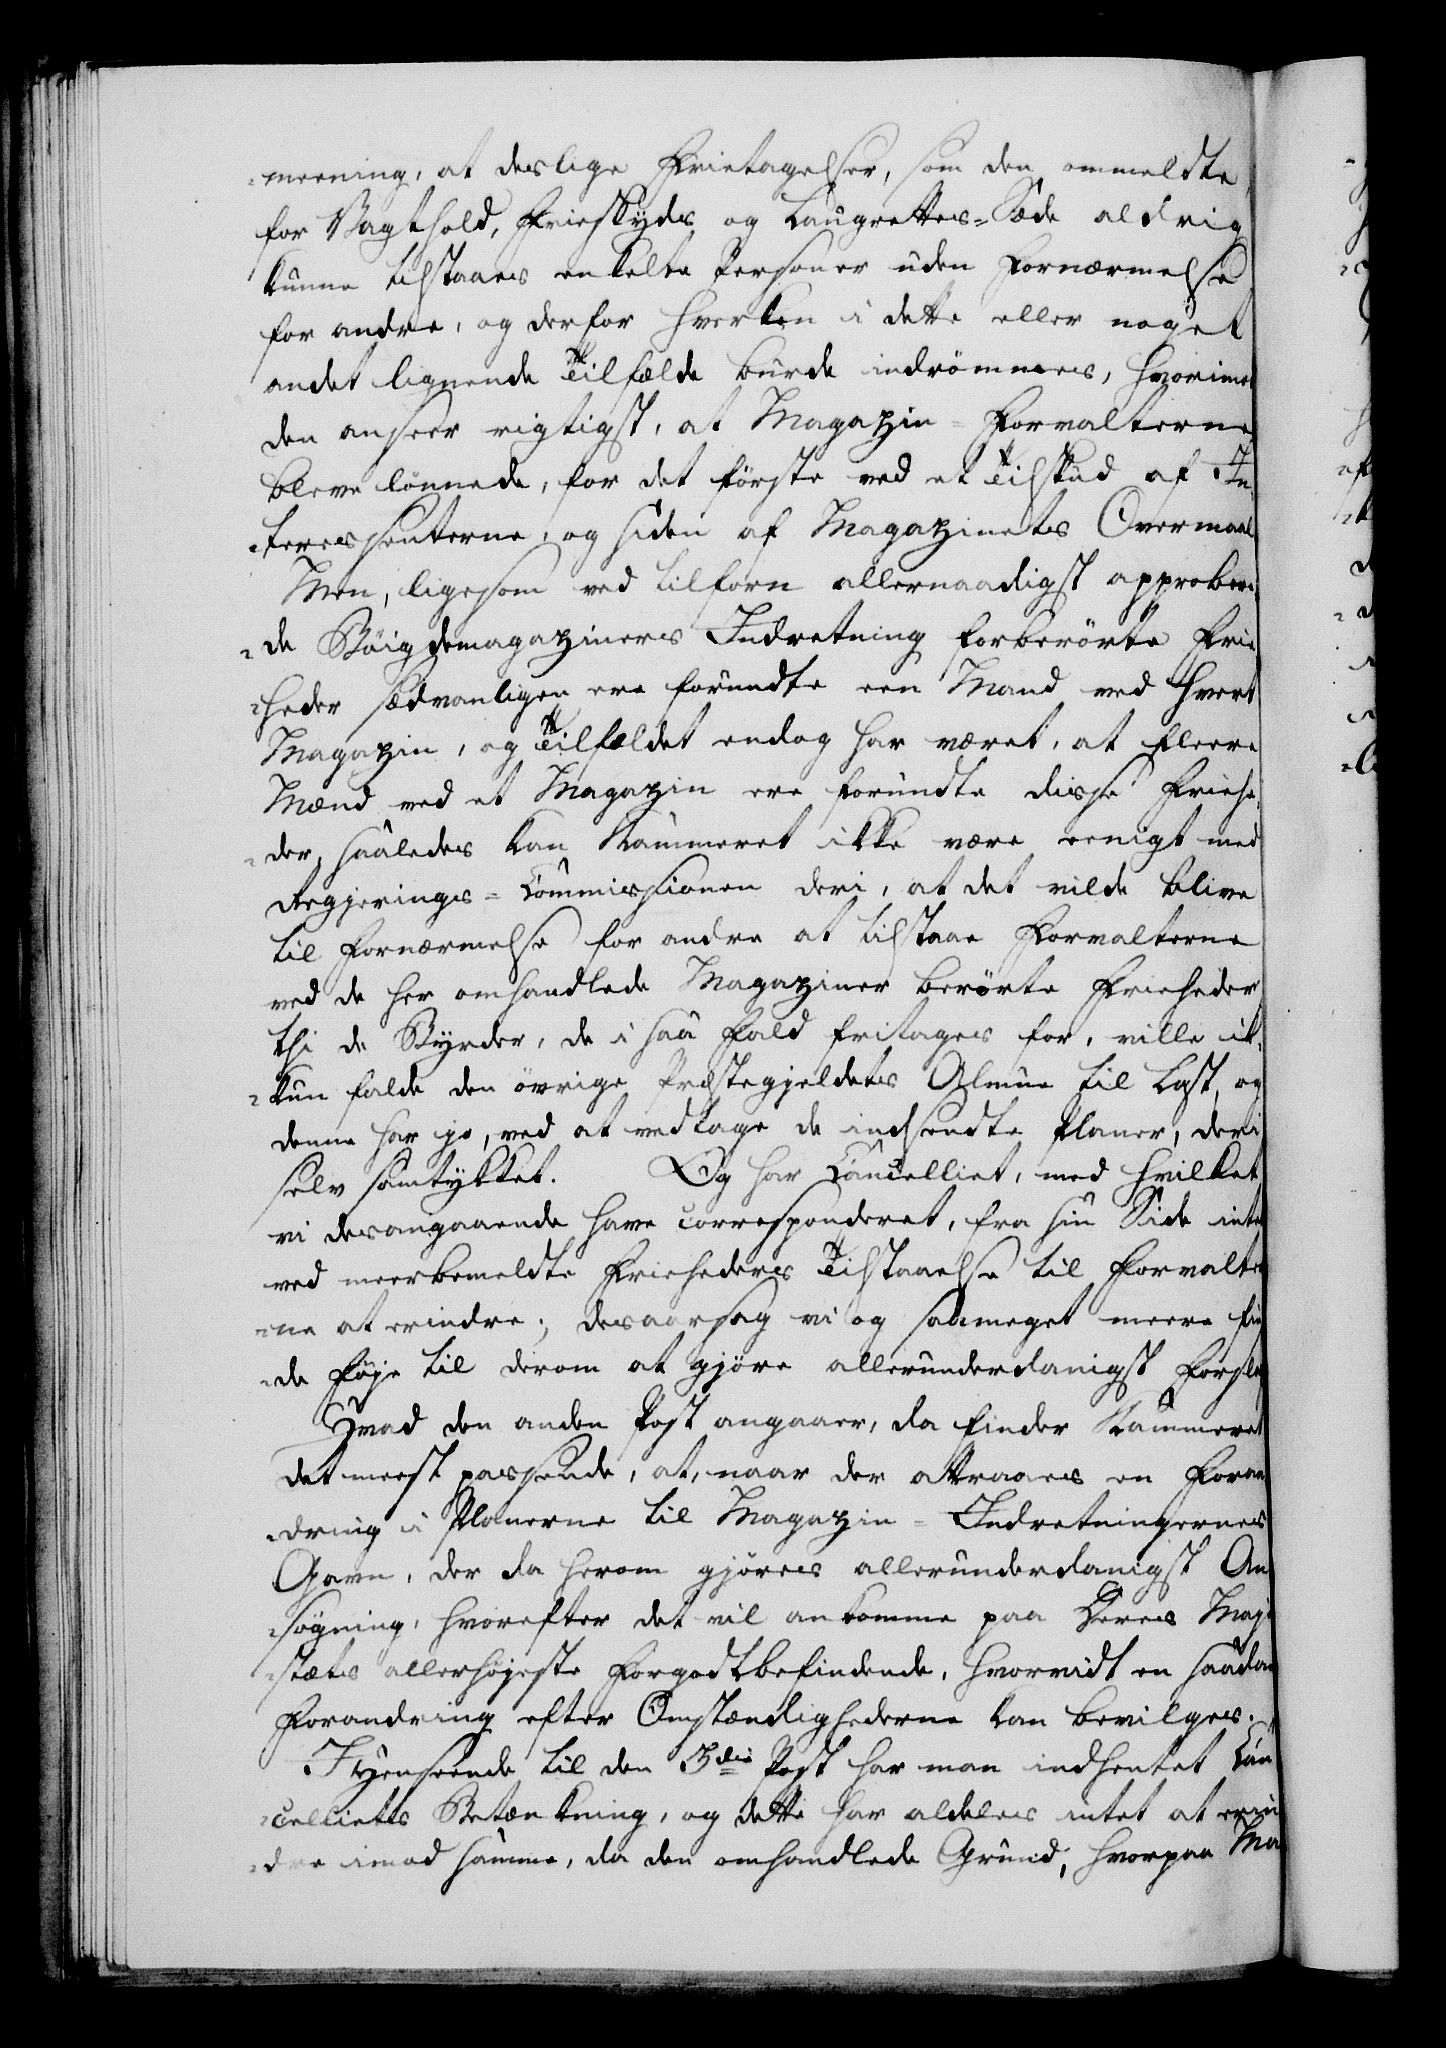 -meening, at deslige Frietagelser, som den ommeldte
for Vagthold, Frieskyds og Laugrettes-Sæde aldrig
kunne tilstaaes enkelte Personer uden Fornærmelse
for andre, og derfor hverken i dette eller noget
andet lignende Tilfælde burde indrömmes, hvorimod
den anseer rigtigst, at Magazin-Forvalterne
bleve lönnede, for det förste ved et Tilskud af In-
-teressenterne, og siden af Magazinets Overmaal
Men, ligesom ved tilforn allernaadigst approbere-
-de Böigdemagaziners Indretning forberörte Frie
-heder sædvanligen ere forundte een Mand ved hvert
Magazin, og Tilfældet endog har været, at fleere
Mænd ved et Magazin ere forundte disse Friehe-
-der, saaledes kan Kammeret ikke være eenigt med
Regjerings-Commissionen deri, at det vilde blive
til Fornærmelse for andre at tilstaae Forvalterne
ved de her omhandlede Magaziner berörte Frieheder
thi de Byrder, de i saa Fald fritages for, ville ik-
-kun falde den övrige Præstegjeldets Almue til Last, og
denne har jo, ved at vedtage de indsendte Planer, deri
selv samtykket. Og har Cancelliet, med hvilket
vi desangaaende have correspondert, fra sin Side intet
ved meerbemeldte Frieheders Tilstaaelse til Forvalter
-ne at erindre; desaarsag vi og saameget meere fin
-de Föje til derom at gjöre allerunderdanigst Forslag
Hvad den anden Post angaaer, da finder Kammeret
det meest passende, at, naar der attraaes en Foran
-dring i Planerne til Magazin-Indretningernes
Gavn, der da herom gjöres allerunderdanigst An
-sögning, hvorefter det vil ankomme paa Deres Maje
-stæts allerhöjeste Forgodtbefindende, hvorvidt en saadan
Forandring efter Omstændighederne kan bevilges.
I Henseende til den 3die Post har man indhentet Can
-celliets Betænkning, og dette har aldeles intet at erin
-dre imod samme, da den omhandlede Grund, hvorpaa Ma